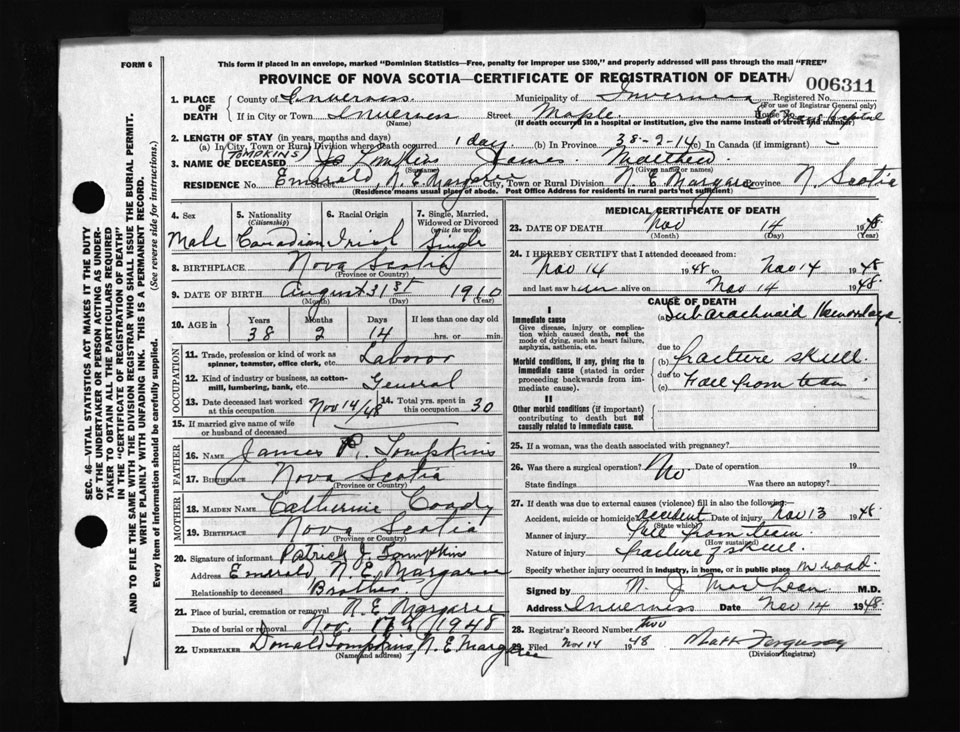 FORM 6
This form if placed in an envelope, marked "Dominion Statistics—Free, penalty for improper use $300," and properly addressed will pass through the mail "FREE"
PROVINCE OF NOVA SCOTIA—CERTIFICATE OF REGISTRATION OF DEATH
006311
1. PLACE OF DEATH
County of Inverness Municipality of Inverness Registered No.
(For use of Registrar General only)
If in City or Town Inverness Street Maple Hospital
(Name) (If death occurred in a hospital or institution, give the name instead of street and number)
2. LENGTH OF STAY (in years, months and days)
(a) In City, Town or Rural Division where death occurred 1 day (b) In Province 38-2-14 (c) In Canada (if immigrant) -
(TOMPKINS)
3. NAME OF DECEASED Tompkins James Matthew
(Surname) (Given name or names)
RESIDENCE No. Emerald Street N. E. Margaree City, Town or Rural Division N. E. Margaree Province N. Scotia
(Residence means usual place of abode. Post Office Address for residents in rural parts not sufficient)
4. Sex
Male
5. Nationality
(Citizenship)
Canadian
6. Racial Origin
Irish
7. Single, Married, Widowed or Divorced
(write the word)
Single
8. BIRTHPLACE Nova Scotia
(Province or Country)
9. DATE OF BIRTH August 31st 1910
(Month) (Day) (Year)
10. AGE in Years Months Days If less than one day old
38 2 14 hrs. or min.
OCCUPATION
11. Trade, profession or kind of work as spinner, teamster, office clerk, etc. Laboror
12. Kind of industry or business, as cotton-mill, lumbering, bank, etc. General
13. Date deceased last worked at this occupation Nov 14/48
14. Total yrs. spent in this occupation 30
15. If married give name of wife or husband of deceased
FATHER
16. NAME James P. Tompkins
17. BIRTHPLACE Nova Scotia
(Province or Country)
MOTHER
18. MAIDEN NAME Catherine Coady
19. BIRTHPLACE Nova Scotia
(Province or Country)
20. Signature of informant Patrick J. Tompkins
Address Emerald N. E. Margaree
Relationship to deceased Brother
21. Place of burial, cremation or removal N. E. Margaree
Date of burial or removal Nov. 1948
22. UNDERTAKER Donald Tompkins, N. E. Margaree
(Name and address)
MEDICAL CERTIFICATE OF DEATH
23. DATE OF DEATH Nov 14 1948
(Month) (Day) (Year)
24. I HEREBY CERTIFY that I attended deceased from:
Nov 14 1948 to Nov 14 1948
and last saw alive on Nov 14 1948.
CAUSE OF DEATH
I
Immediate cause (a) Subarachnoid Hemorrhage
Give disease, injury or complication which caused death, not the mode of dying, such as heart failure, asphyxia, asthenia, etc.
due to
Morbid conditions, if any, giving rise to immediate cause (stated in order proceeding backwards from immediate cause).
(b) fracture skull.
due to
(c) Fall from team
II
Other morbid conditions (if important) contributing to death but not causally related to immediate cause.
25. If a woman, was the death associated with pregnancy?
26. Was there a surgical operation? No Date of operation 19
State findings Was there an autopsy?
27. If death was due to external causes (violence) fill in also the following—
Accident, suicide or homicide? accident Date of injury Nov 13 1948.
(State which)
Manner of injury fall from team.
(How sustained)
Nature of injury fracture of skull.
Specify whether injury occurred in industry, in home, or in public place in road.
Signed by N. J. MacLean M.D.
Address Inverness Date Nov 14 1948.
28. Registrar's Record Number two
29. Filed Nov 14 1948 Matt Ferguson
(Division Registrar)
SEC. 46—VITAL STATISTICS ACT MAKES IT THE DUTY
OF THE UNDERTAKER OR PERSON ACTING AS UNDER-
TAKER TO OBTAIN ALL THE PARTICULARS REQUIRED
IN THE "CERTIFICATE OF REGISTRATION OF DEATH"
AND TO FILE THE SAME WITH THE DIVISION REGISTRAR WHO SHALL ISSUE THE BURIAL PERMIT.
WRITE PLAINLY WITH UNFADING INK. THIS IS A PERMANENT RECORD.
Every item of information should be carefully supplied. (See reverse side for instructions.)